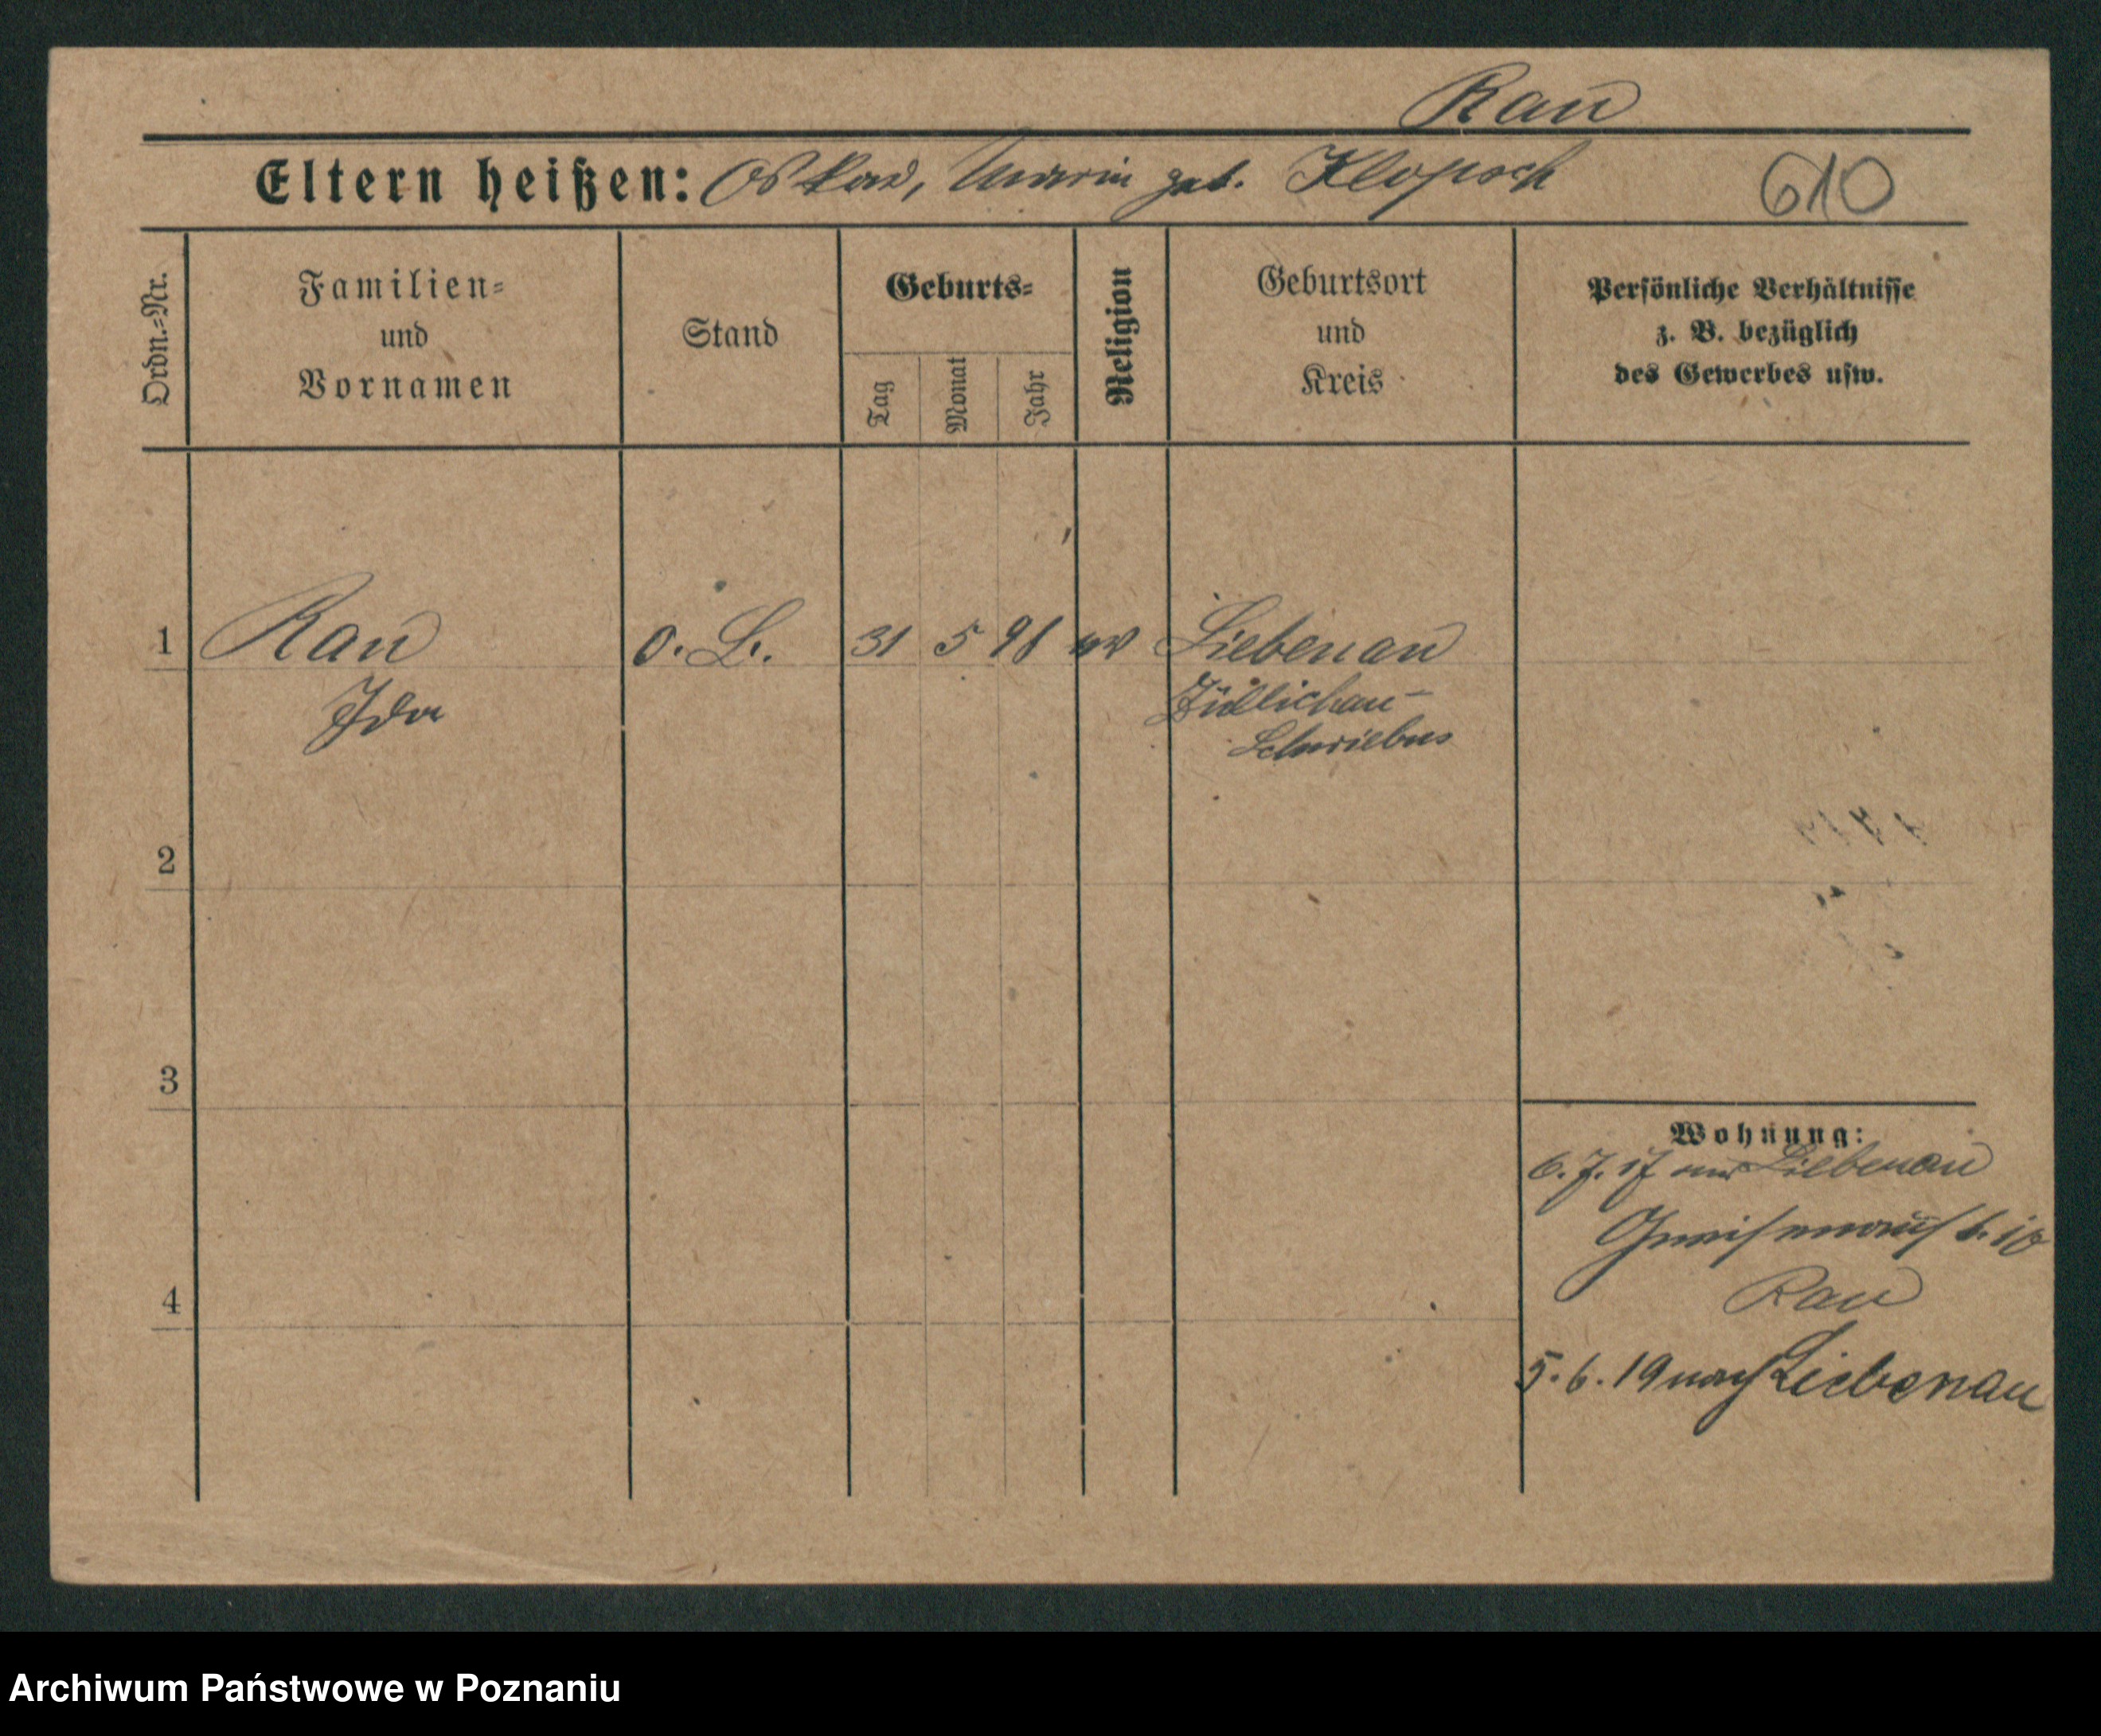 Rau
Eltern heißen: Oskar, Marie geb. Klopsch 610
Ordn.-Nr.
Familien-
und
Vornamen
Stand
Geburts-
Tag
Monat
Jahr
Religion
Geburtsort
und
Kreis
Persönliche Verhältnisse
z. B. bezüglich
des Gewerbes usw.
1 Rau o. B. 31 5 98 ev Liebenau
Ida Züllichau-
Schwiebus
2
3
4
Wohnung:
6. 7. 17 aus Liebenau
Gneisenaustr. 10
Rau
5. 6. 19 nach Liebenau
Archiwum Państwowe w Poznaniu